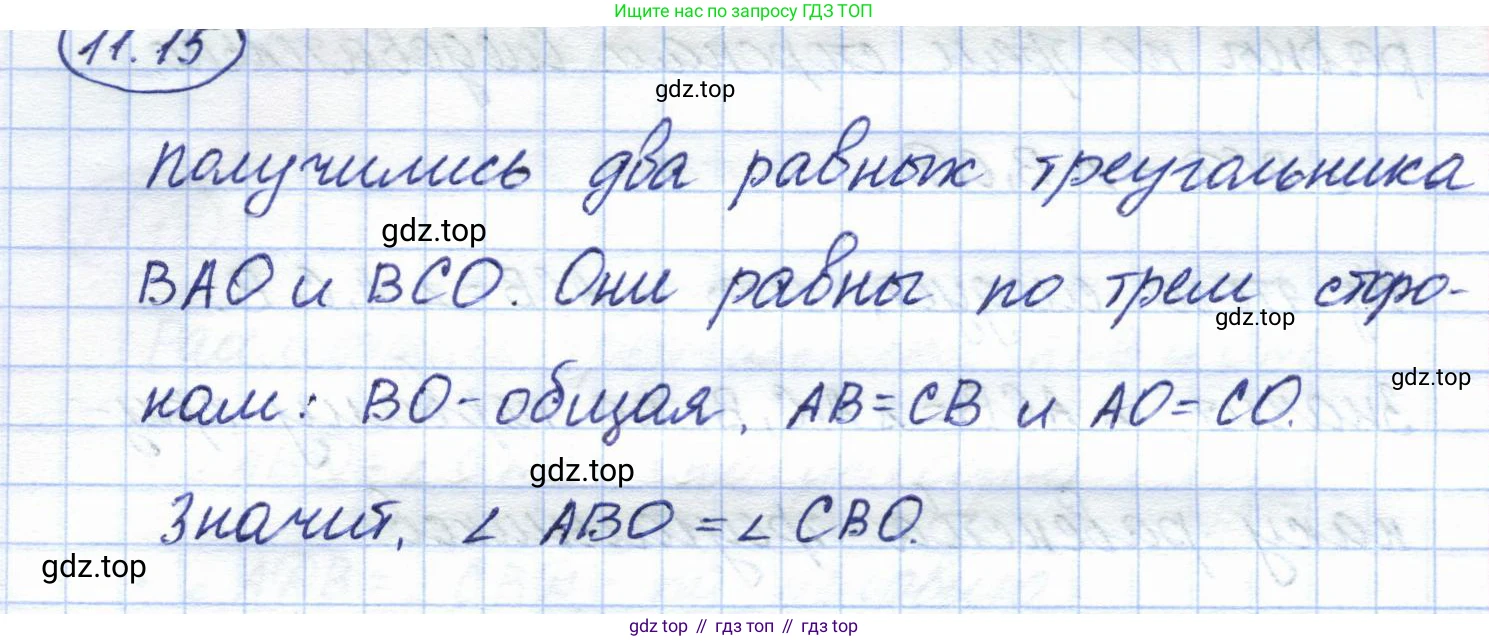 Ищите нас по запросу ГДЗ ТОП
11.15
gdz.top
получились два равных треугольника
gdz.top
BAO и BCO. Они равны по трем сторо-
gdz.top
gdz.top
нам: BO - общая, AB = CB и AO = CO.
gdz.top
Значит, ∠ ABO = ∠ CBO.
gdz.top
gdz top // гдз топ // гдз top